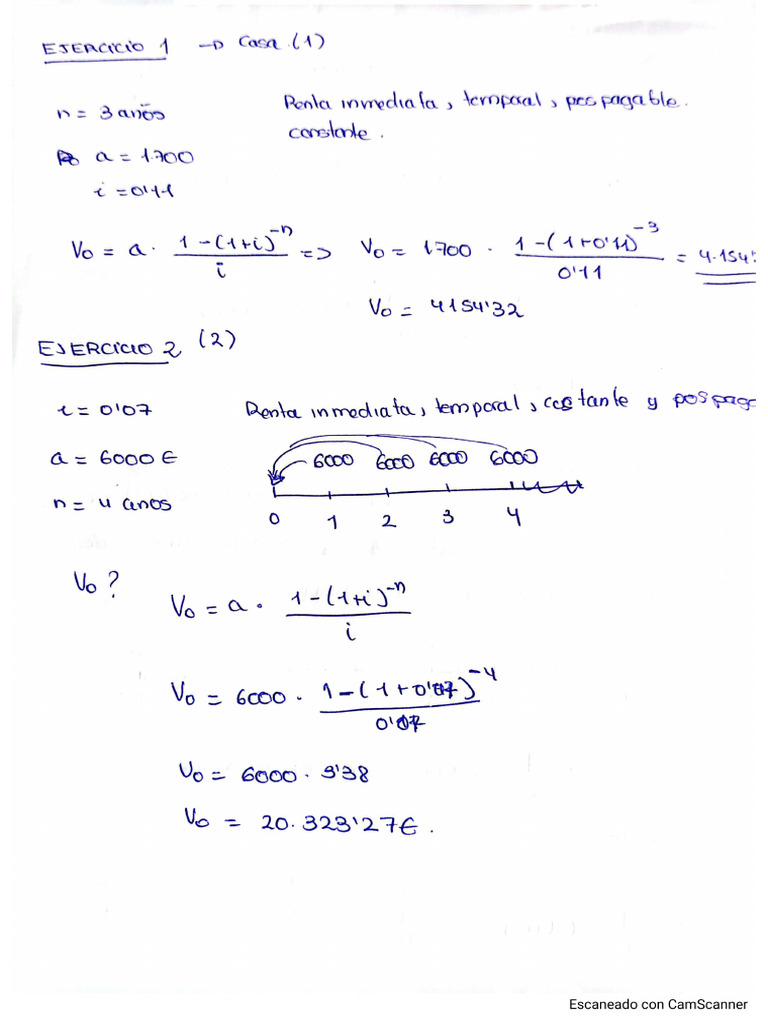 EJERCICIO 1 → Casa (1)
n = 3 años Renta inmediata, temporal, pospagable.
constante.
a = 1.700
i = 0'11
V0 = a · 1-(1+i)^-n / i => V0 = 1.700 · 1-(1+0'11)^-3 / 0'11 = 4.154'
V0 = 4154'32
EJERCICIO 2 (2)
i = 0'07 Renta inmediata, temporal, constante y pospaga
a = 6000 €
6000 6000 6000 6000
n = 4 anos
0 1 2 3 4
V0?
V0 = a · 1-(1+i)^-n / i
V0 = 6000 · 1-(1+0'07)^-4 / 0'07
V0 = 6000 · 3'38
V0 = 20.323'27€.
Escaneado con CamScanner